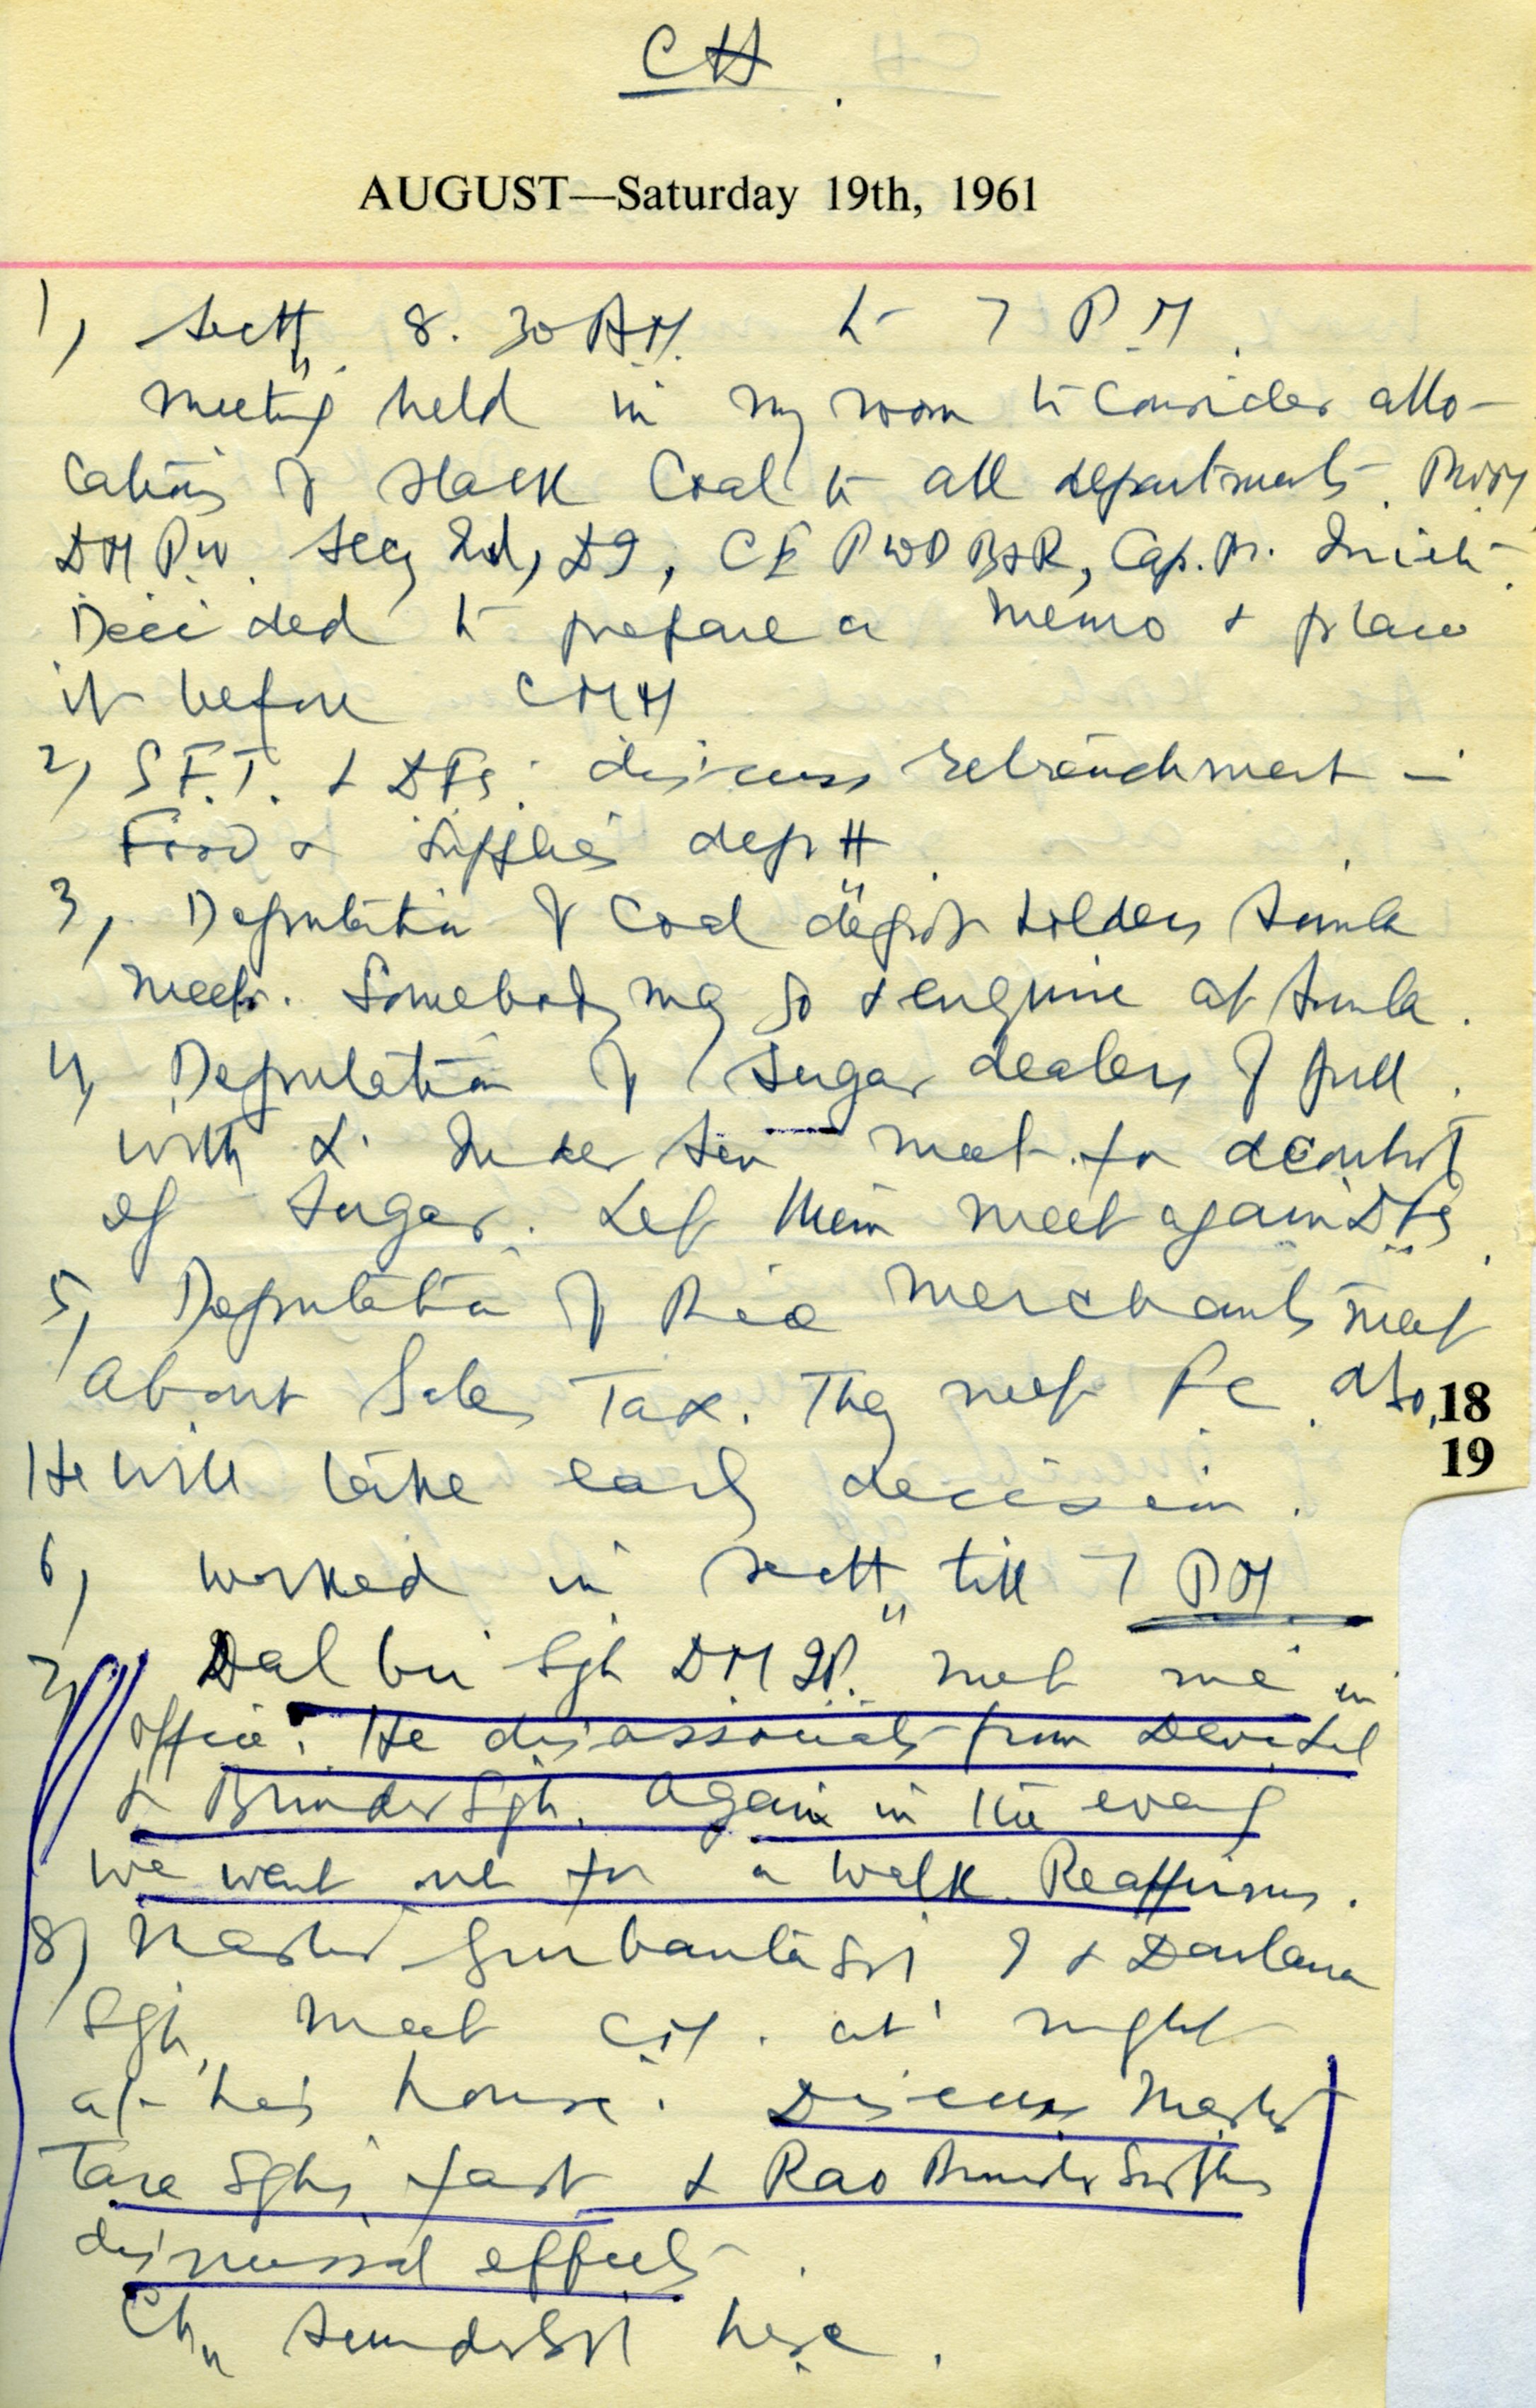 CH
AUGUST—Saturday 19th, 1961
1) Sectt. 8.30 AM to 7 P.M.
meeting held in my room to consider allo-
cations of slack coal to all departments.
DM P.W. Secy Ind, DI, CE PWD B&R, Cap. Pr.
Decided to prepare a memo & place
it before
2) S.F.T. & DFS. discuss retrenchment in
Food & Supplies deptt.
3) Deputation of Coal depot holders Simla
meet. Somebody may go & enquire at Simla.
4) Deputation of Sugar dealers of
with L. Inder Sen meet for decontrol
of Sugar. Let them meet again DFS.
5) Deputation of Rice merchants meet
about Sales Tax. They meet F.C. also,
He will take early decision.
18
19
6) worked in Sectt till 7 PM
7) Dalbir Sgh DMIP. met me in
office. He disassociates from Devi Lal
& Brinder Sgh. Again in the eveng
we went out for a walk. Reaffirms.
8) Master Gurbanta Sgh, I & Daulana
Sgh, meet CM. at night
at his house. Discuss Master
Tara Sgh's fast & Rao Birender Singh's
dismissal effects.
Ch. Sunder Sgh here.